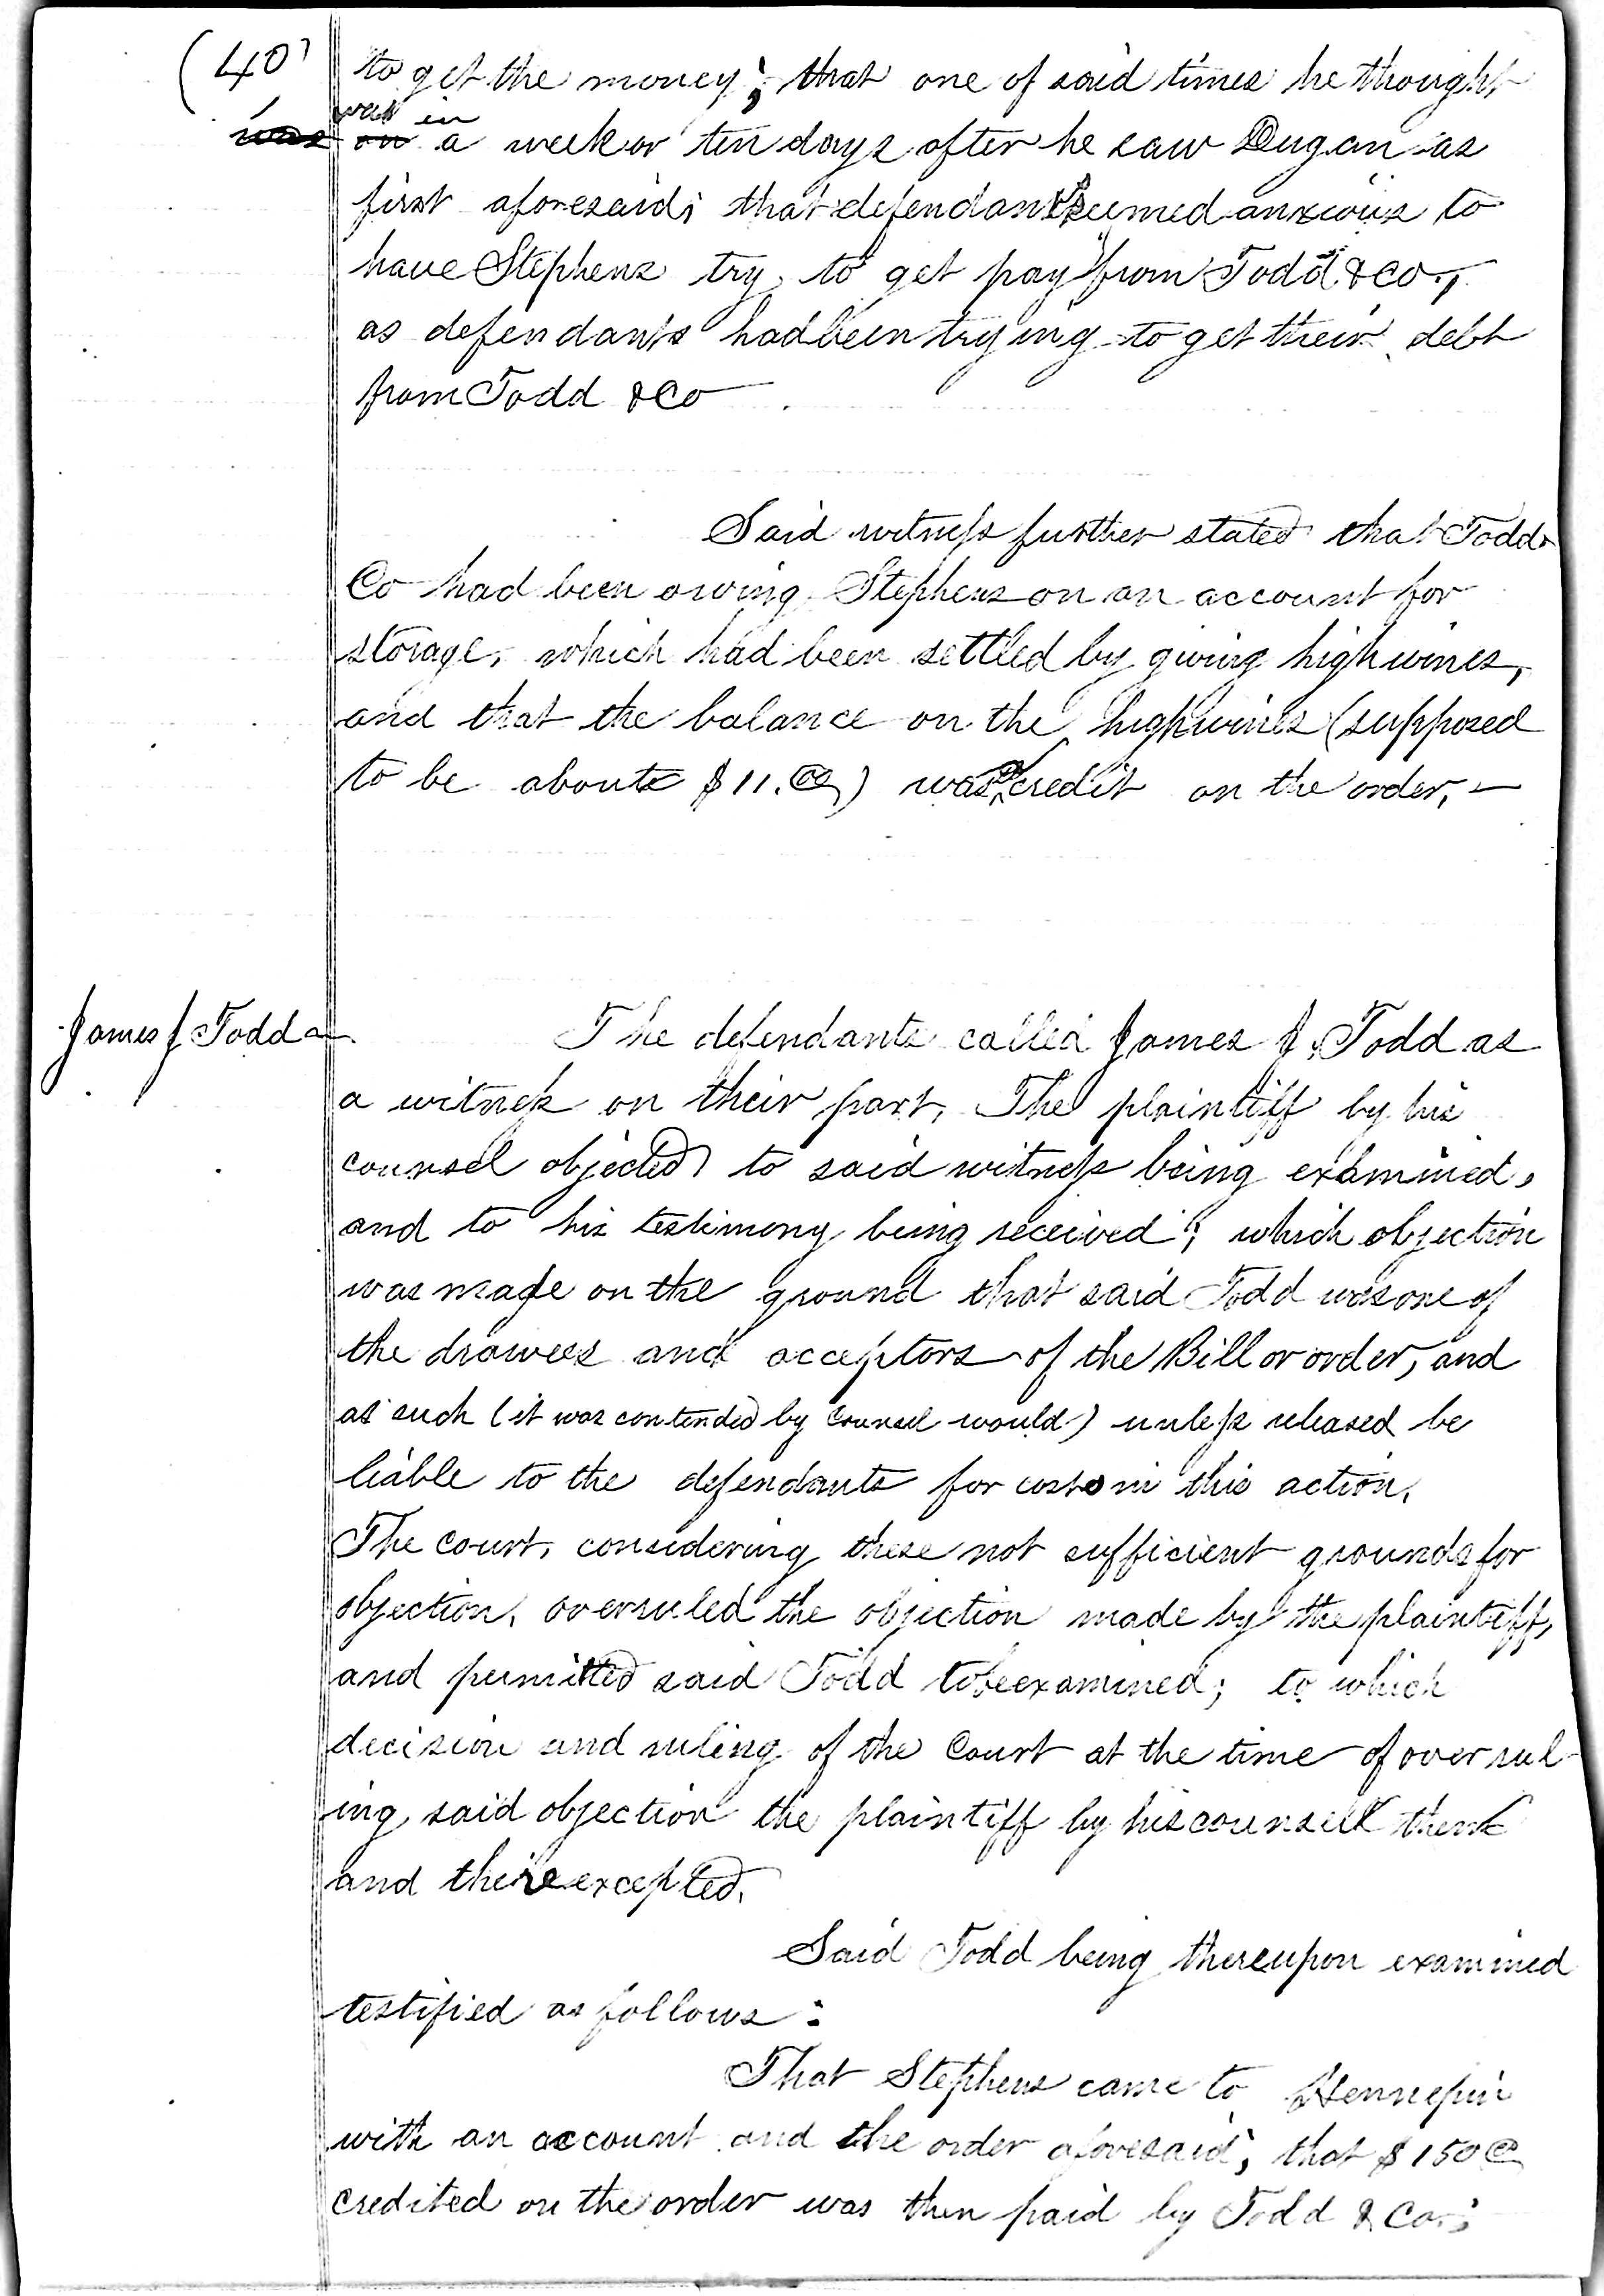 (40)
to get the money; that one of said times he thought
was in
was on a week or ten days after he saw Dugan as
first aforesaid; that defendants seemed anxious to
have Stephens try to get pay from Todd & Co.,
as defendants had been trying to get their debt
from Todd & Co
Said witness further stated that Todd &
Co had been owing Stephens on an account for
storage, which had been settled by giving highwines,
and that the balance on the highwines (supposed
to be about $11.00) was credit on the order,
James J Todd
The defendants called James J. Todd as
a witness on their part, The plaintiff by his
counsel objected to said witness being examined,
and to his testimony being received; which objection
was made on the ground that said Todd was one of
the drawees and acceptors of the Bill or order, and
as such (it was contended by counsel would) unless released be
liable to the defendants for costs in this action.
The court, considering these not sufficient grounds for
objection, overruled the objection made by the plaintiff,
and permitted said Todd to be examined; to which
decision and ruling of the Court at the time of over rul
ing said objection the plaintiff by his counsell then
and there excepted.
Said Todd being thereupon examined
testified as follows:
That Stephens came to Hennepin
with an account and the order aforesaid; that $150
credited on the order was then paid by Todd & Co.;